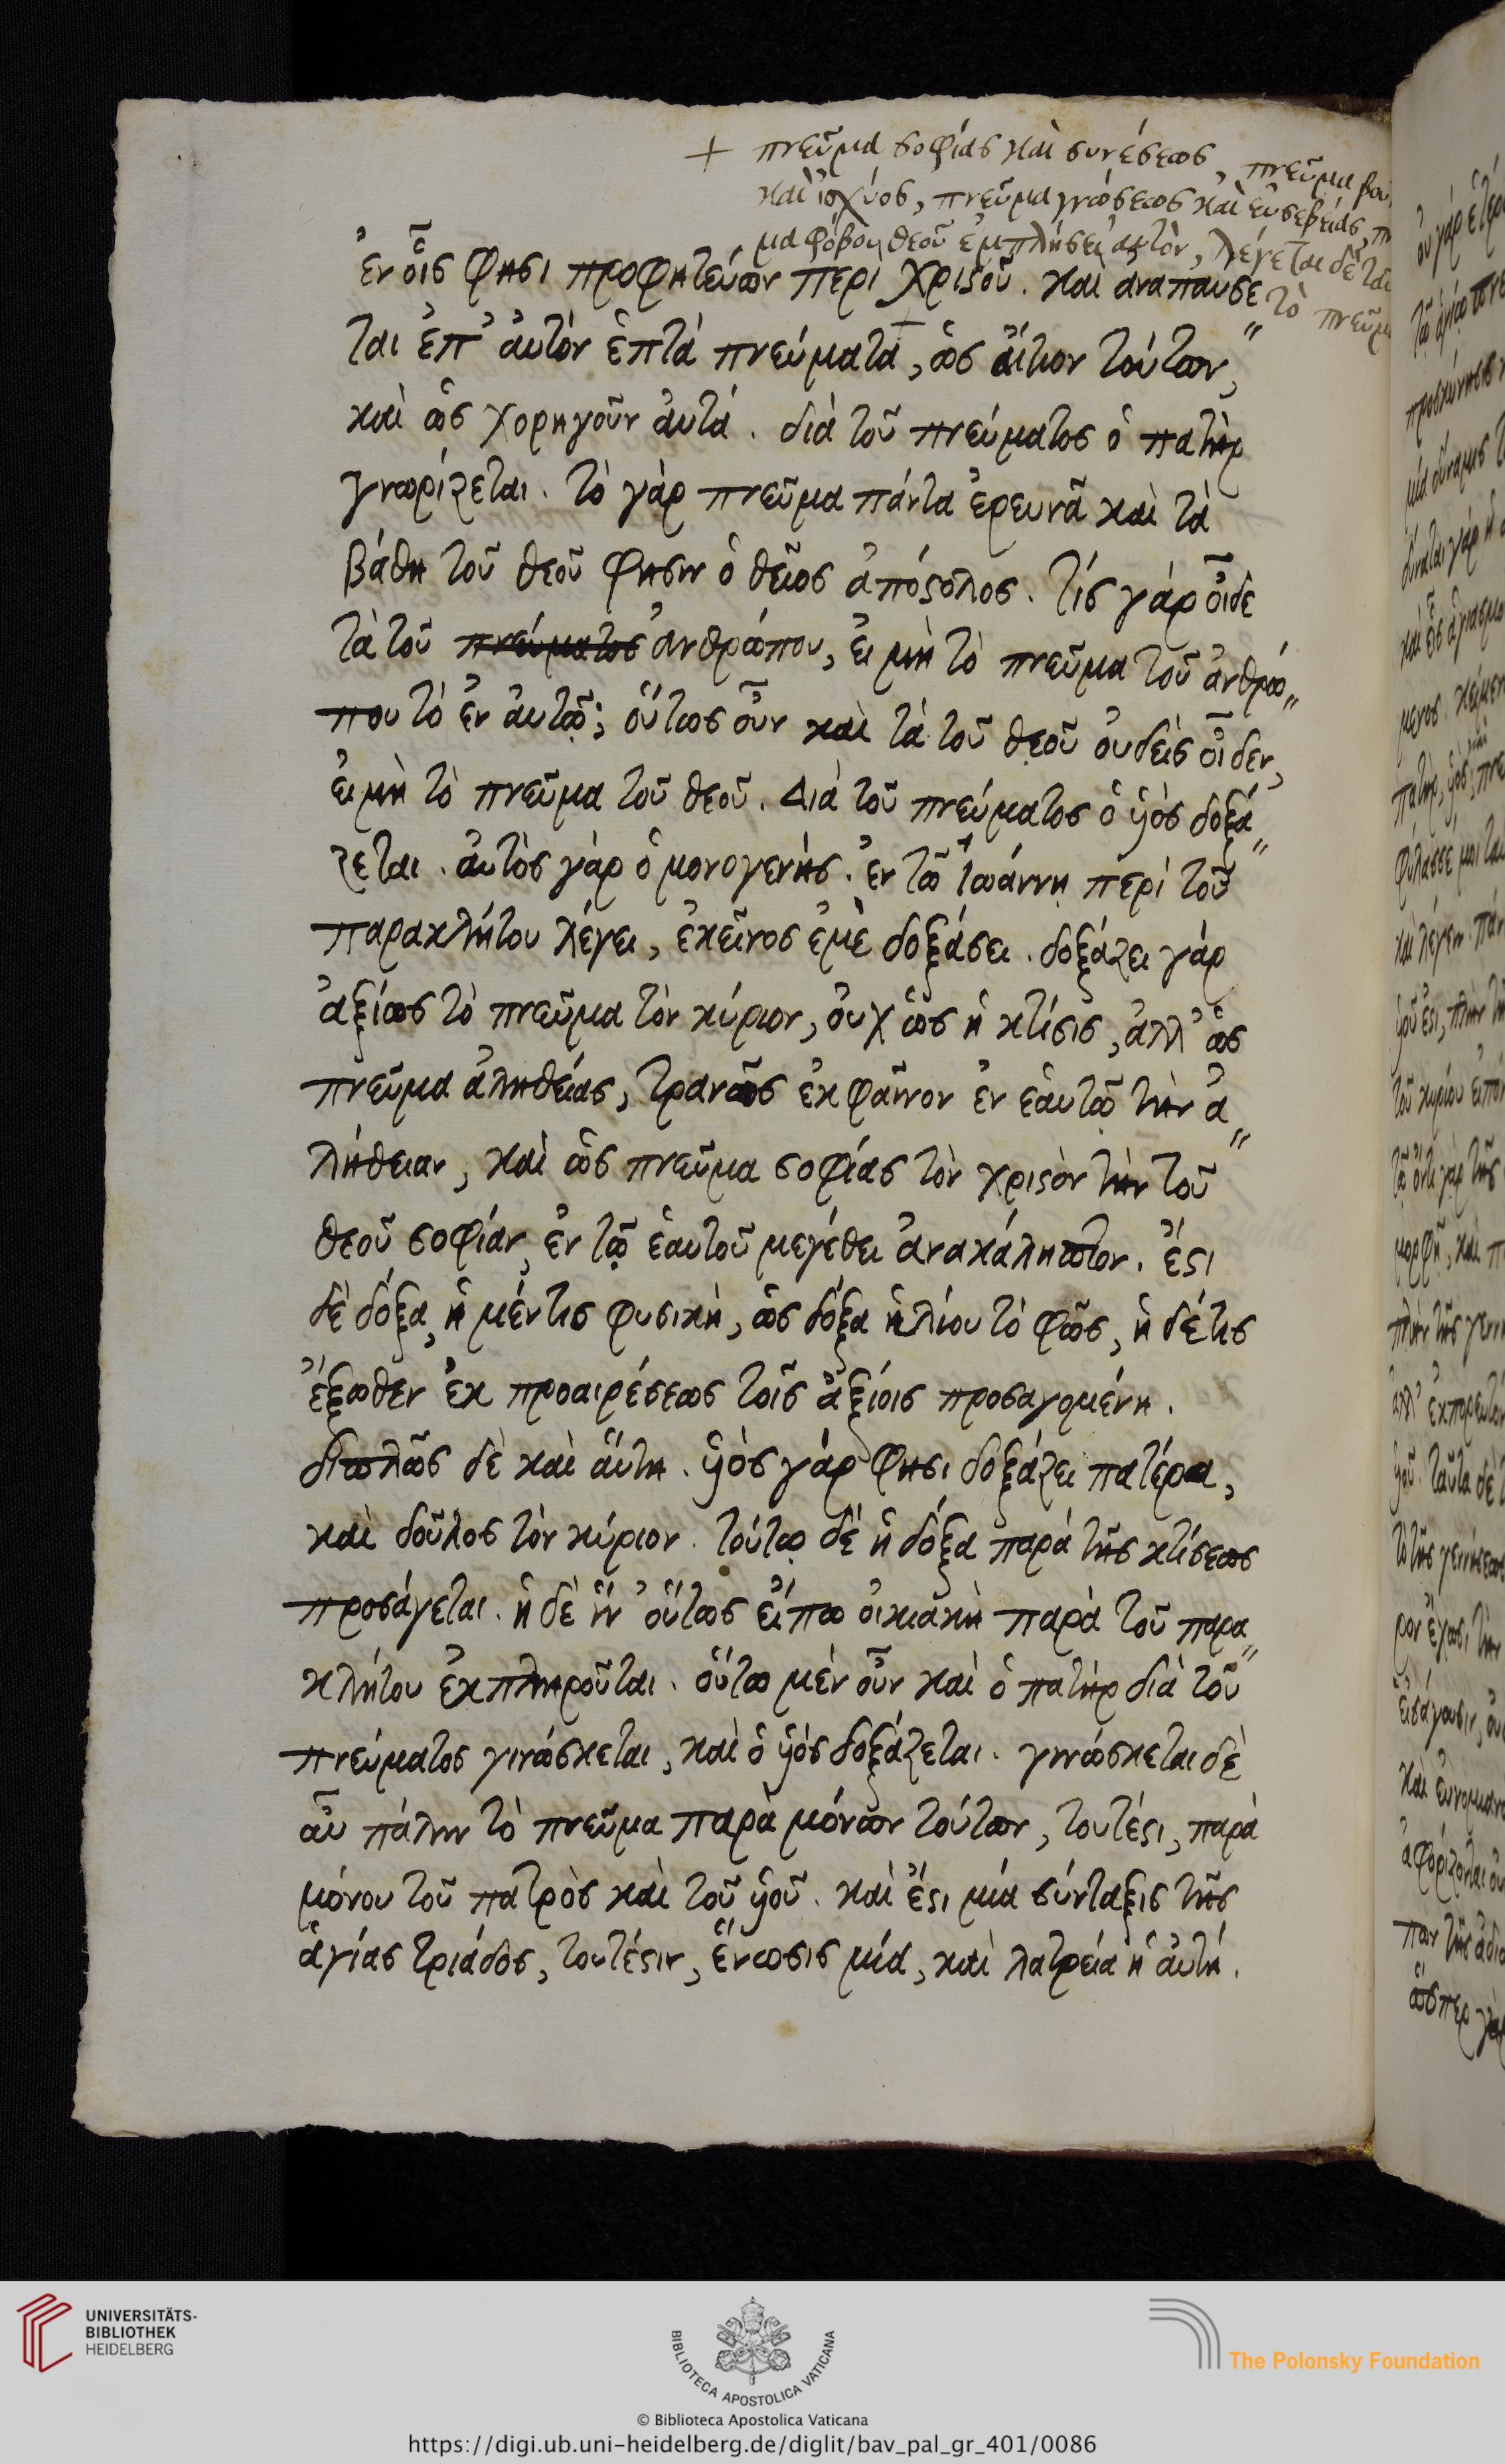 + πνεῦμα σοφίας καὶ συνέσεως, πνεῦμα βου
καὶ ἰσχύος, πνεῦμα γνώσεως καὶ εὐσεβείας, πν
μα φόβου θεοῦ ἐμπλήσει αὐτὸν, λέγεται δὲ ταῦ
τὸ πνεῦμ
ἐν οἷς φησι προφητεύων περι χριστοῦ. καὶ αναπαυσε
ται ἐπ' ἀυτόν ἑπτά πνεύματα +, ὡς ἀίτιον τούτων,
καὶ ὡς χορηγοῦν ἀυτά. διὰ τοῦ πνεύματος ὁ πατὴρ
γνωρίζεται. τὸ γὰρ πνεῦμα πάντα ἐρευνᾶ καὶ τὰ
βάθη τοῦ θεοῦ φησιν ὁ θεῖος ἀπόστολος. τίς γάρ οἶδε
τὰ τοῦ πνεύματος ἀνθρώπου, ἐι μὴ τὸ πνεῦμα τοῦ ἀνθρώ"
που τὸ ἐν ἀυτῷ; ὅυτως οὖν καὶ τὰ τοῦ θεοῦ ὀυδεὶς οἶδεν,
ἐι μὴ τὸ πνεῦμα τοῦ θεοῦ. Διὰ τοῦ πνεύματος ὁ ὑιὸς δοξά"
ζεται. ἀυτὸς γὰρ ὁ μονογενὴς. ἐν τῶ Ἰωάννῃ περὶ τοῦ
παρακλήτου λέγει, ἐκεῖνος ἐμὲ δοξάσει. δοξάζει γάρ
ἀξίως τὸ πνεῦμα τὸν κύριον, ὀυχ ὡς ἡ κτίσις, ἀλλ' ὡς
πνεῦμα ἀληθείας, τρανῶς ἐκφαῖνον ἐν ἑαυτῷ τὴν ἀ"
λήθειαν, καὶ ὡς πνεῦμα σοφίας τὸν χριστὸν τὴν τοῦ
θεοῦ σοφίαν, ἐν τῷ ἑαυτοῦ μεγέθει ἀνακάλυπτον. ἔστι
δὲ δόξα, ἡ μέν τις φυσικὴ, ὡς δόξα ἡλίου τὸ φῶς, ἡ δέ τις
ἔξωθεν ἐκ προαιρέσεως τοῖς ἀξίοις προσαγομένη.
διπλῶς δὲ καὶ ἅυτη. ὑιὸς γάρ φησι δοξάζει πατέρα,
καὶ δοῦλος τὸν κύριον. τούτῳ δὲ ἡ δόξα παρά τῆς κτίσεως
προσάγεται. ἡ δὲ ἵν' ὅυτως εἴπω ὀικιακὴ παρὰ τοῦ παρα"
κλήτου ἐκπληροῦται. ὅυτω μὲν οὖν καὶ ὁ πατὴρ διὰ τοῦ
πνεύματος γινώσκεται, καὶ ὁ ὑιὸς δοξάζεται. γινώσκεται δὲ
αὖ πάλιν τὸ πνεῦμα παρὰ μόνων τούτων, τουτέστι, παρὰ
μόνου τοῦ πατρὸς καὶ τοῦ ὑιοῦ. καὶ ἔστι μία σύνταξις τῆς
ἁγίας τριάδος, τουτέστιν, ἕνωσις μία, καὶ λατρεία ἡ ἀυτή.
UNIVERSITÄTS-
BIBLIOTHEK
HEIDELBERG
BIBLIOTECA APOSTOLICA VATICANA
The Polonsky Foundation
© Biblioteca Apostolica Vaticana
https://digi.ub.uni-heidelberg.de/diglit/bav_pal_gr_401/0086